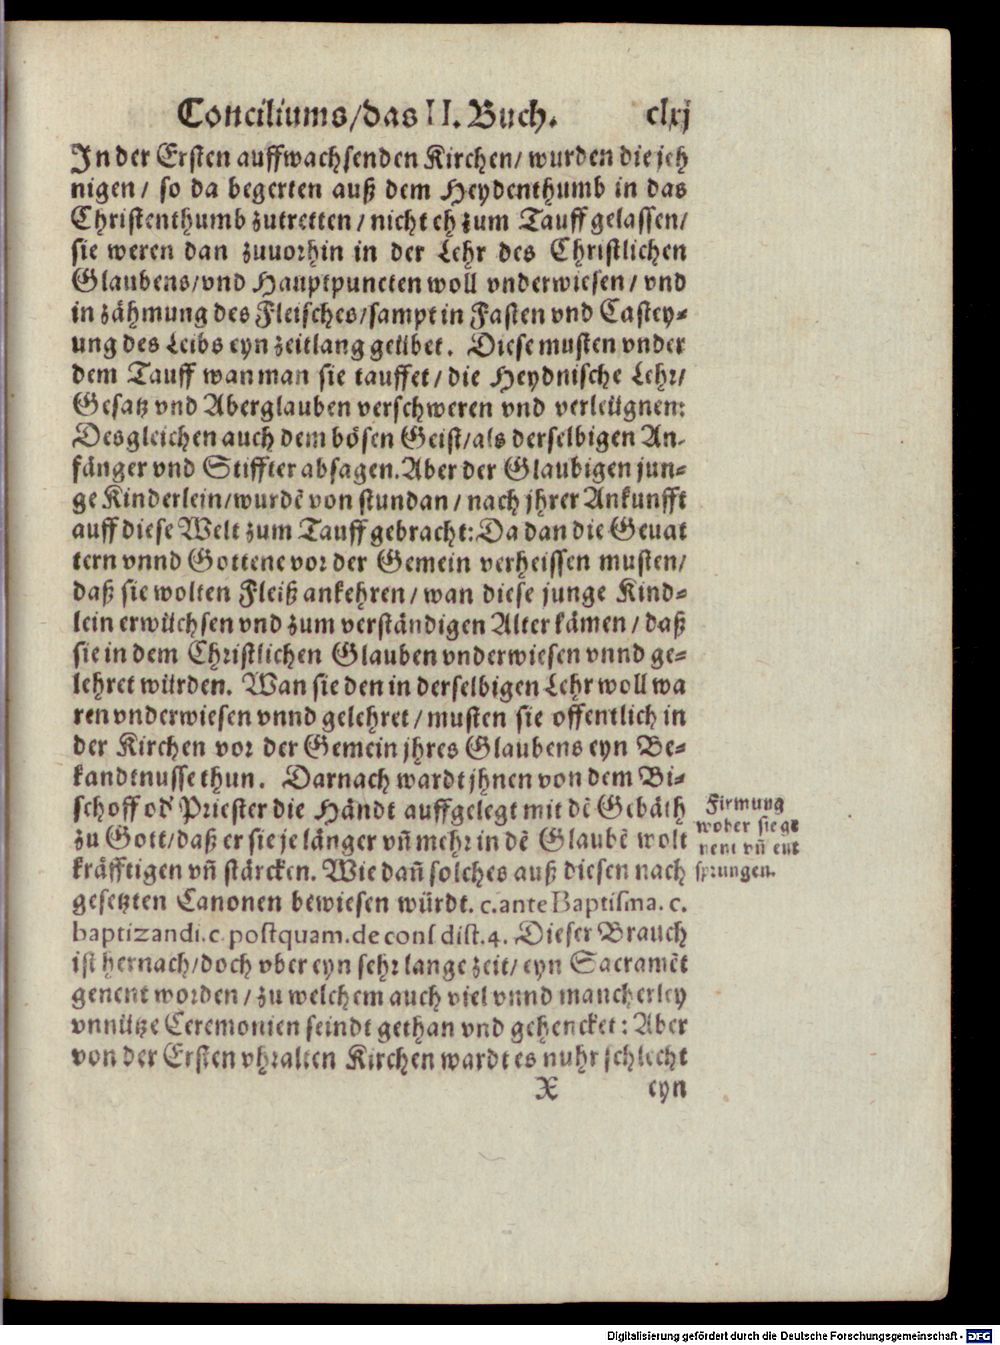 Conciliums/das II. Buch. clxj
In der Ersten auffwachsenden Kirchen/ wurden die jeh
nigen/ so da begerten auß dem Heydenthumb in das
Christenthumb zutretten/ nicht eh zum Tauff gelassen/
sie weren dan zuuorhin in der Lehr des Christlichen
Glaubens/vnd Hauptpuncten woll vnderwiesen/ vnd
in zähmung des Fleisches/sampt in Fasten vnd Castey⸗
ung des Leibs eyn zeitlang geübet. Diese musten vnder
dem Tauff wan man sie tauffet/ die Heydnische Lehr/
Gesatz vnd Aberglauben verschweren vnd verleügnen:
Desgleichen auch dem bösen Geist/als derselbigen An-
fänger vnd Stiffter absagen. Aber der Glaubigen jun⸗
ge Kinderlein/wurdẽ von stundan/ nach jhrer Ankunfft
auff diese Welt zum Tauff gebracht: Da dan die Geuat
tern vnnd Gottene vor der Gemein verheissen musten/
daß sie wolten Fleiß ankehren/ wan diese junge Kind⸗
lein erwüchsen vnd zum verständigen Alter kämen/ daß
sie in dem Christlichen Glauben vnderwiesen vnnd ge⸗
lehret würden. Wan sie den in derselbigen Lehr woll wa
ren vnderwiesen vnnd gelehret/ musten sie offentlich in
der Kirchen vor der Gemein jhres Glaubens eyn Be⸗
kandtnusse thun. Darnach wardt jhnen von dem Bi⸗
schoff od' Priester die Händt auffgelegt mit dẽ Gebäth
zu Gott/daß er sie je länger vñ mehr in dẽ Glaubẽ wolt
kräfftigen vñ stärcken. Wie dañ solches auß diesen nach
gesetzten Canonen bewiesen würdt. c. ante Baptisma. c.
baptizandi. c. postquam. de cons dist. 4. Dieser Brauch
ist hernach/doch vber eyn sehr lange zeit/ eyn Sacramẽt
genent worden/ zu welchem auch viel vnnd mancherley
vnnütze Ceremonien seindt gethan vnd gehencket: Aber
von der Ersten vhralten Kirchen wardt es nuhr schlecht
X eyn
Firmung
woher sie ge
nent vñ ent
sprungen.
Digitalisierung gefördert durch die Deutsche Forschungsgemeinschaft - DFG